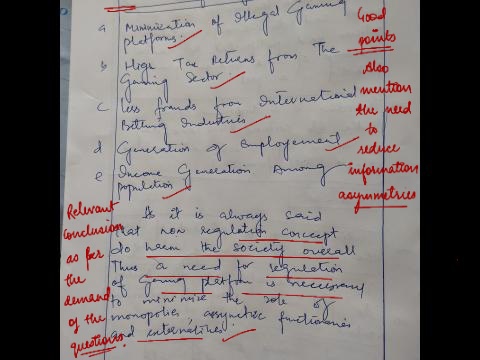 a Minimization of Illegal Gaming
platforms.
b High Tax Returns from The
Gaming Sector.
c Less frauds from International
Betting Industries
d Generation of Employement
e Income Generation Among
population
Good
points
Also
mention
the need
to
reduce
information
asymmetries
As it is always said
that non regulation concept
do harm the society overall
Thus a need for regulation
of gaming platform is neccessary
to minimize the role of
monopolies, asymetric functionaries
and externalities.
Relevant
conclusion
as per
the
demand
of the
question